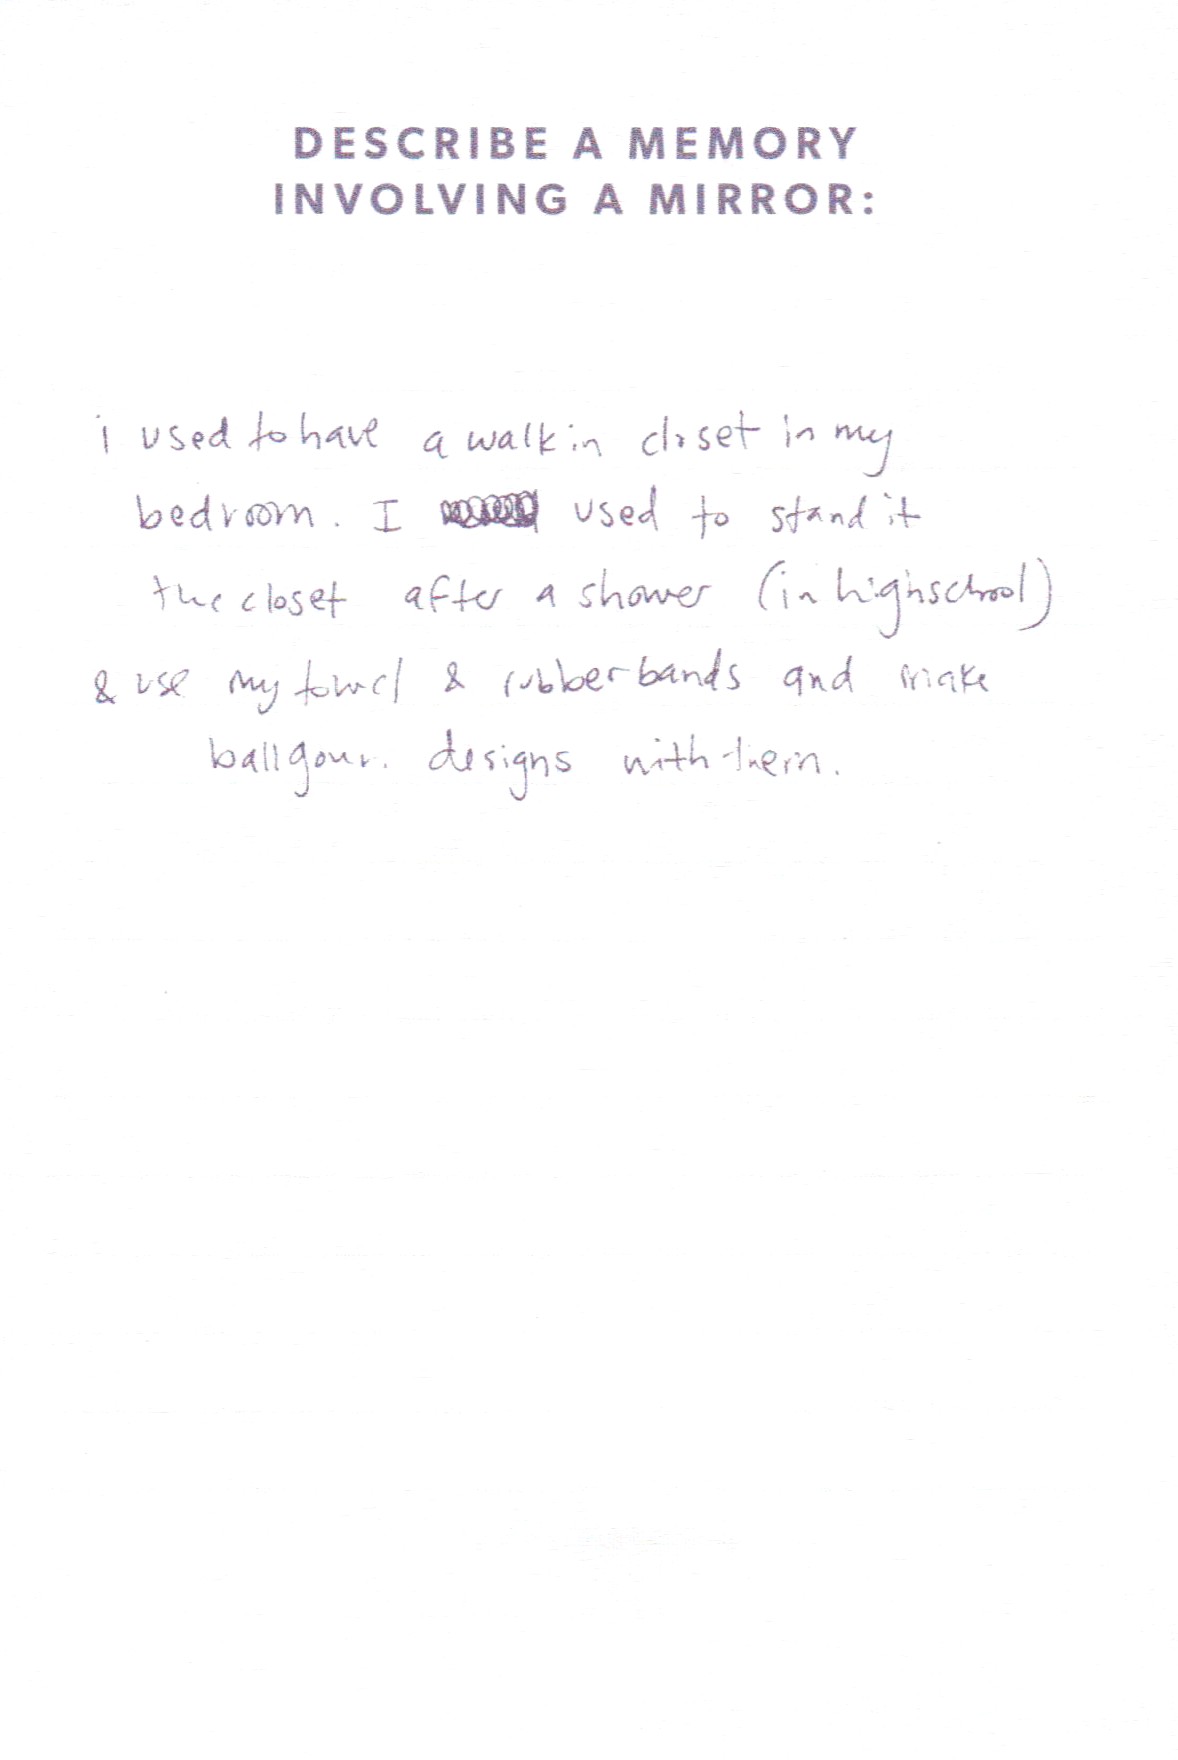 DESCRIBE A MEMORY
INVOLVING A MIRROR:
i used to have a walk in closet in my
bedroom. I used to stand it
the closet after a shower (in highschool)
& use my towel & rubber bands and make
ballgown designs with them.